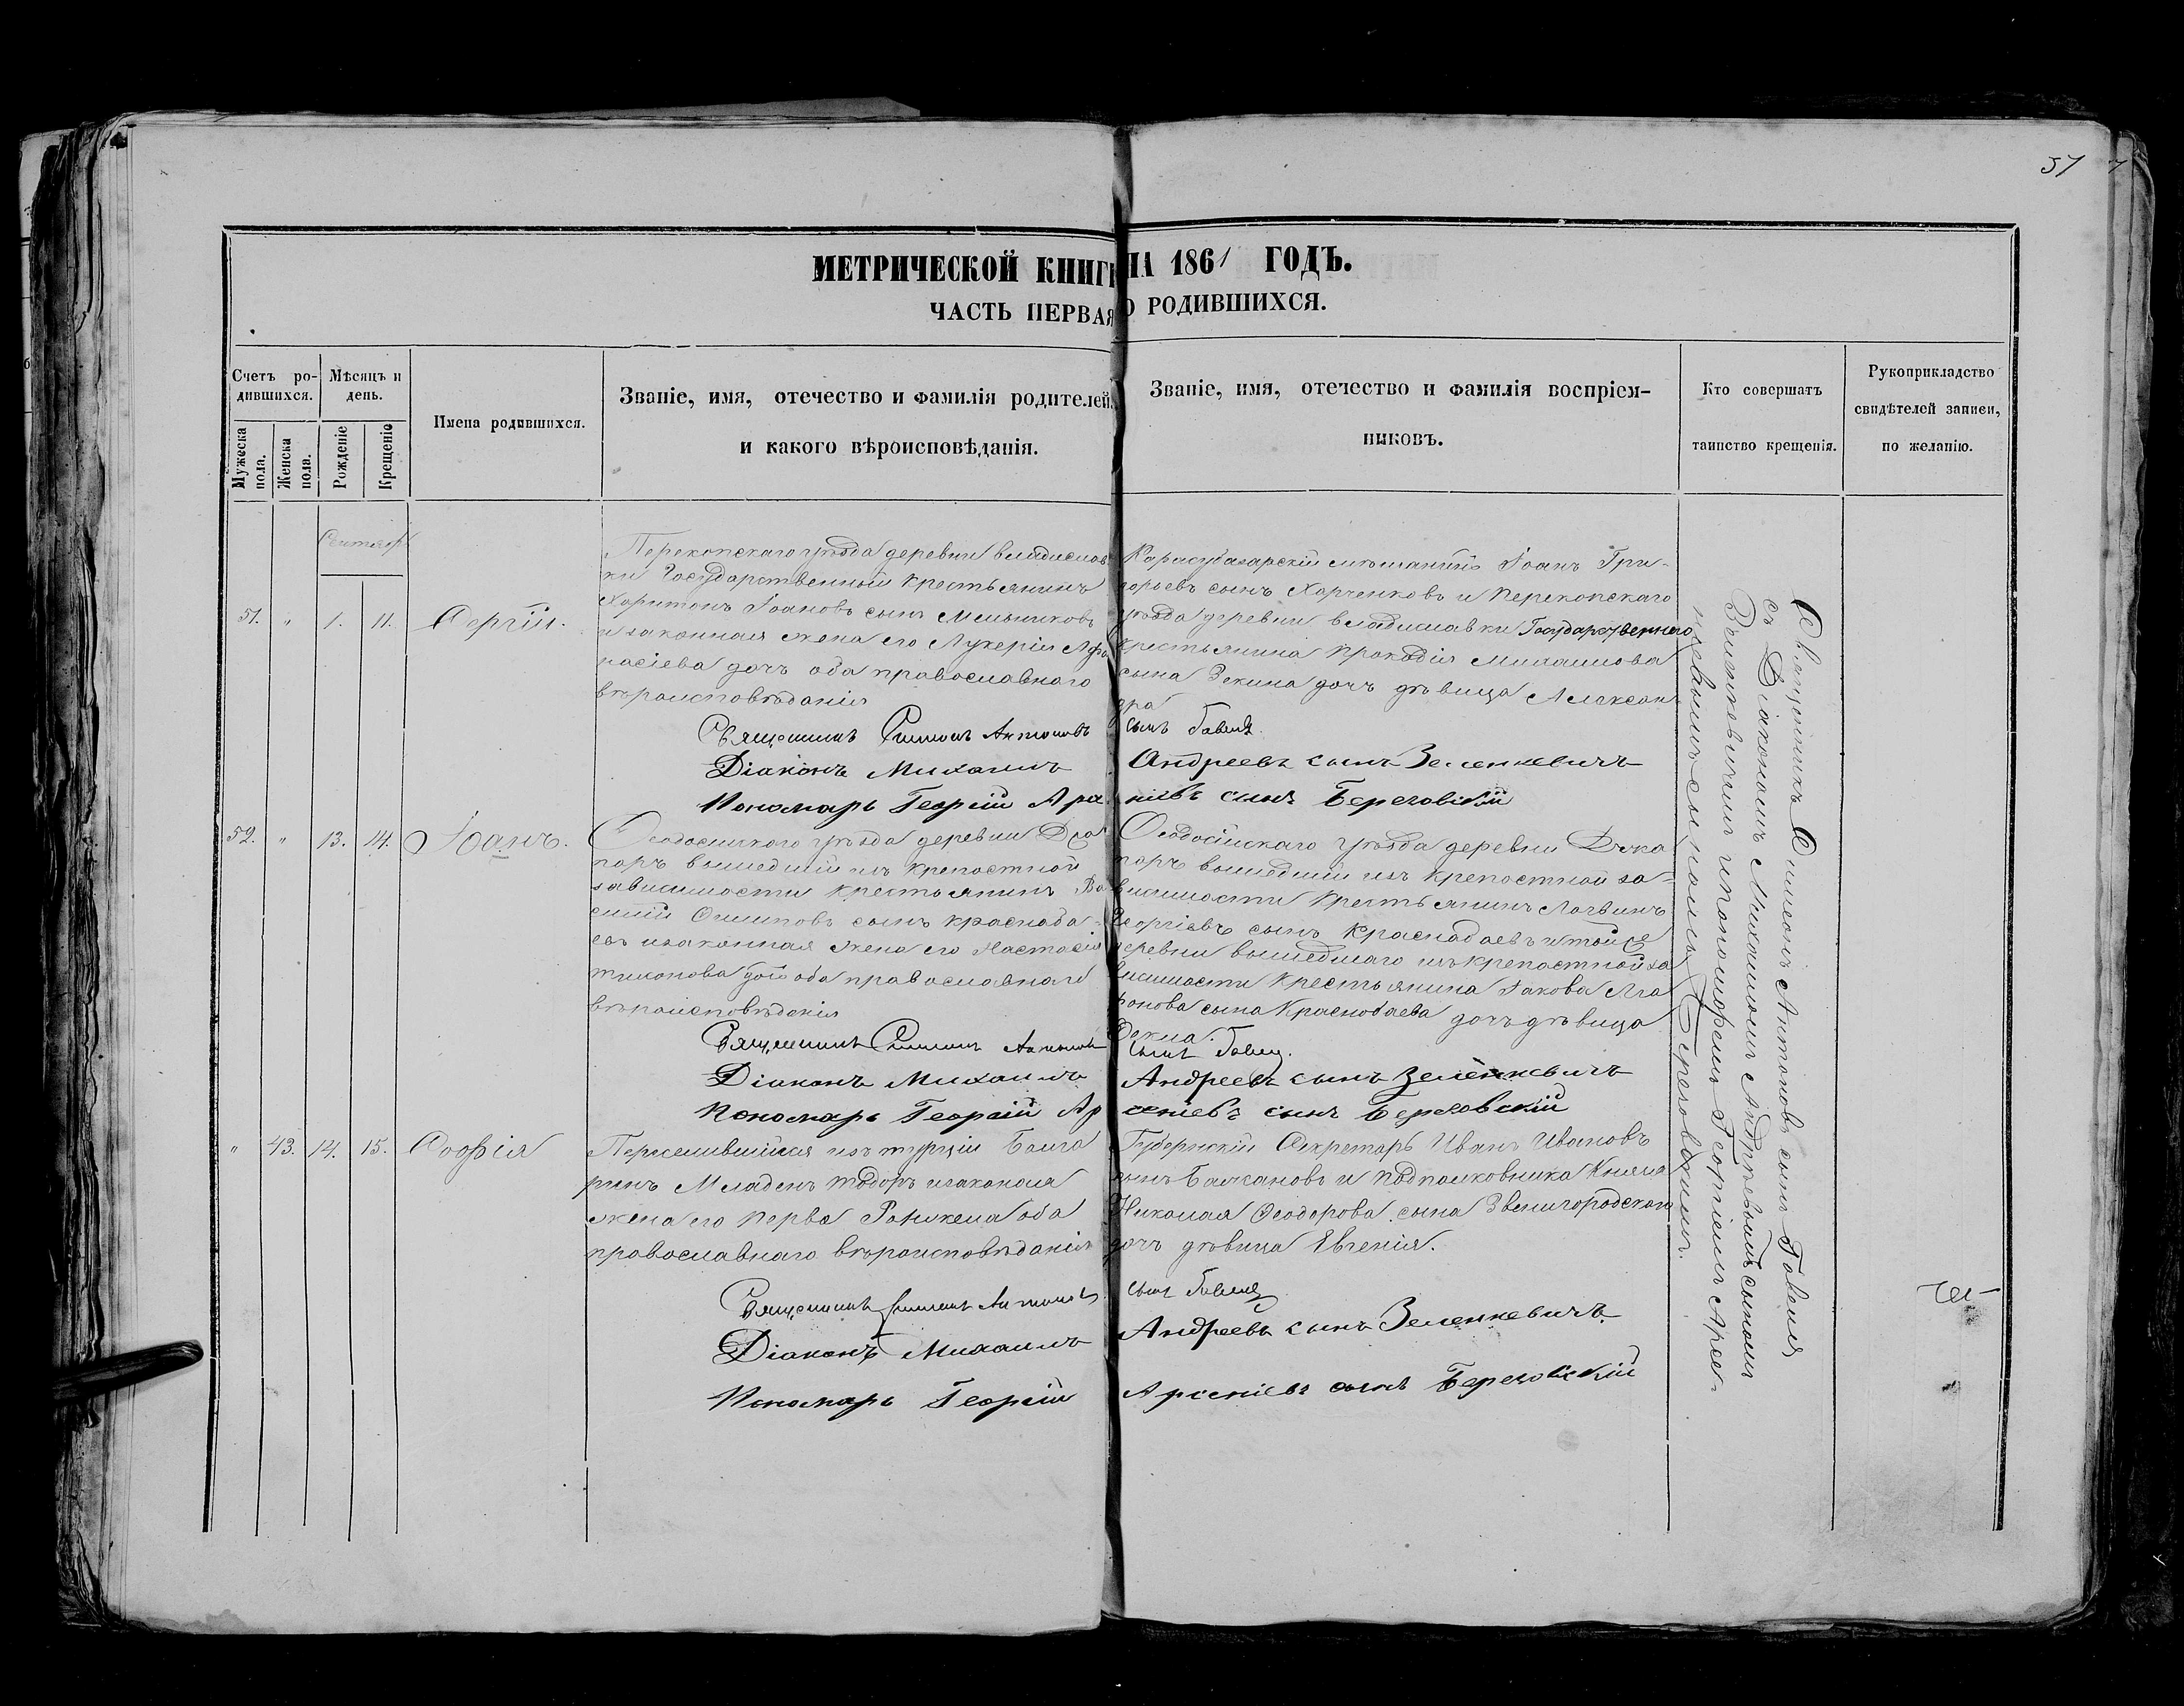 57
МЕТРИЧЕСКОЙ КНИГИ НА 1861 ГОДЪ.
ЧАСТЬ ПЕРВАЯ О РОДИВШИХСЯ.
Счетъ ро-
дившихся.
Мужеска пола.
Женска пола.
Мѣсяцъ и
день.
Рожденіе
Крещеніе
Имена родившихся.
Званіе, имя, отечество и фамилія родителей,
и какого вѣроисповѣданія.
Званіе, имя, отечество и фамилія воспріем-
никовъ.
Кто совершатъ
таинство крещенія.
Рукоприкладство
свидѣтелей записи,
по желанію.
Сентябр
51. " 1. 11. Сергій.
Перекопскаго уѣзда деревни владислав
ки Государственный крестьянинъ
Харитонъ Іоановъ сынъ Мельниковъ
и законная жена его Лукерія Афа
насіева дочъ оба православнаго
вѣроисповѣданія
Карасубазарскій мѣшанинъ Іоанъ Гри-
горьевъ сынъ Харченковъ и перекопскаго
уѣзда деревни владиславки Государственнаго
крестьянина
сына Зекина дочъ дѣвица Алексан
дра
Священникъ Симеонъ Антоновъ сынъ Гавеля
Діаконъ Михаилъ Андреевъ сынъ Зеленкевичъ
Пономарь Георгій Арсеніевъ сынъ Береговскій
52. " 13. 14. Іоанъ.
Ѳеодосійскаго уѣзда деревни
поръ вышедшій изъ крепостной
зависимости крестьянинъ Ва
силій Осиповъ сынъ красноба-
евъ изаконная жена его Настасія
тихонова дочъ оба православнаго
вѣроисповѣданія
Ѳеодосійскаго уѣзда деревни
поръ вышедшій изъ крепостной за-
висимости крестьянинъ Логвинъ
Георгіевъ сынъ Краснобаевъ и тойже
деревни вышедшаго изъ крепостной за
висимости крестьянина Іакова Ага
фонова сына Краснобаева дочъ дѣвица
Ѳекла.
Священникъ Симеонъ Антоновъ сынъ Гавеля.
Діаконъ Михаилъ Андреевъ сынъ Зеленкевичъ
Пономарь Георгій Арсеніевъ сынъ Береговскій
" 43. 14. 15. Софія
Переселившійся изъ турціи Болга
ринъ Младенъ тодоръ изаконая
жена его перва оба
православнаго вѣроисповѣданія
Губернскій Секретарь Иванъ Ивановъ
сынъ Балкановъ и подполковника Князя
Николая Ѳеодорова сына Звенигородскаго
дочъ дѣвица Евгенія.
Священникъ Симеонъ Антоновъ сынъ Гавеля
Діаконъ Михаилъ Андреевъ сынъ Зеленкевичъ
Пономарь Георгій Арсеніевъ сынъ Береговскій
Священникъ Симеонъ Антоновъ сынъ Гавеля
съ Діакономъ Михаиломъ Андреевымъ сыномъ
Зеленкевичемъ ипономаремъ Георгіемъ Арсе-
ніевымъ сыномъ Береговскимъ.